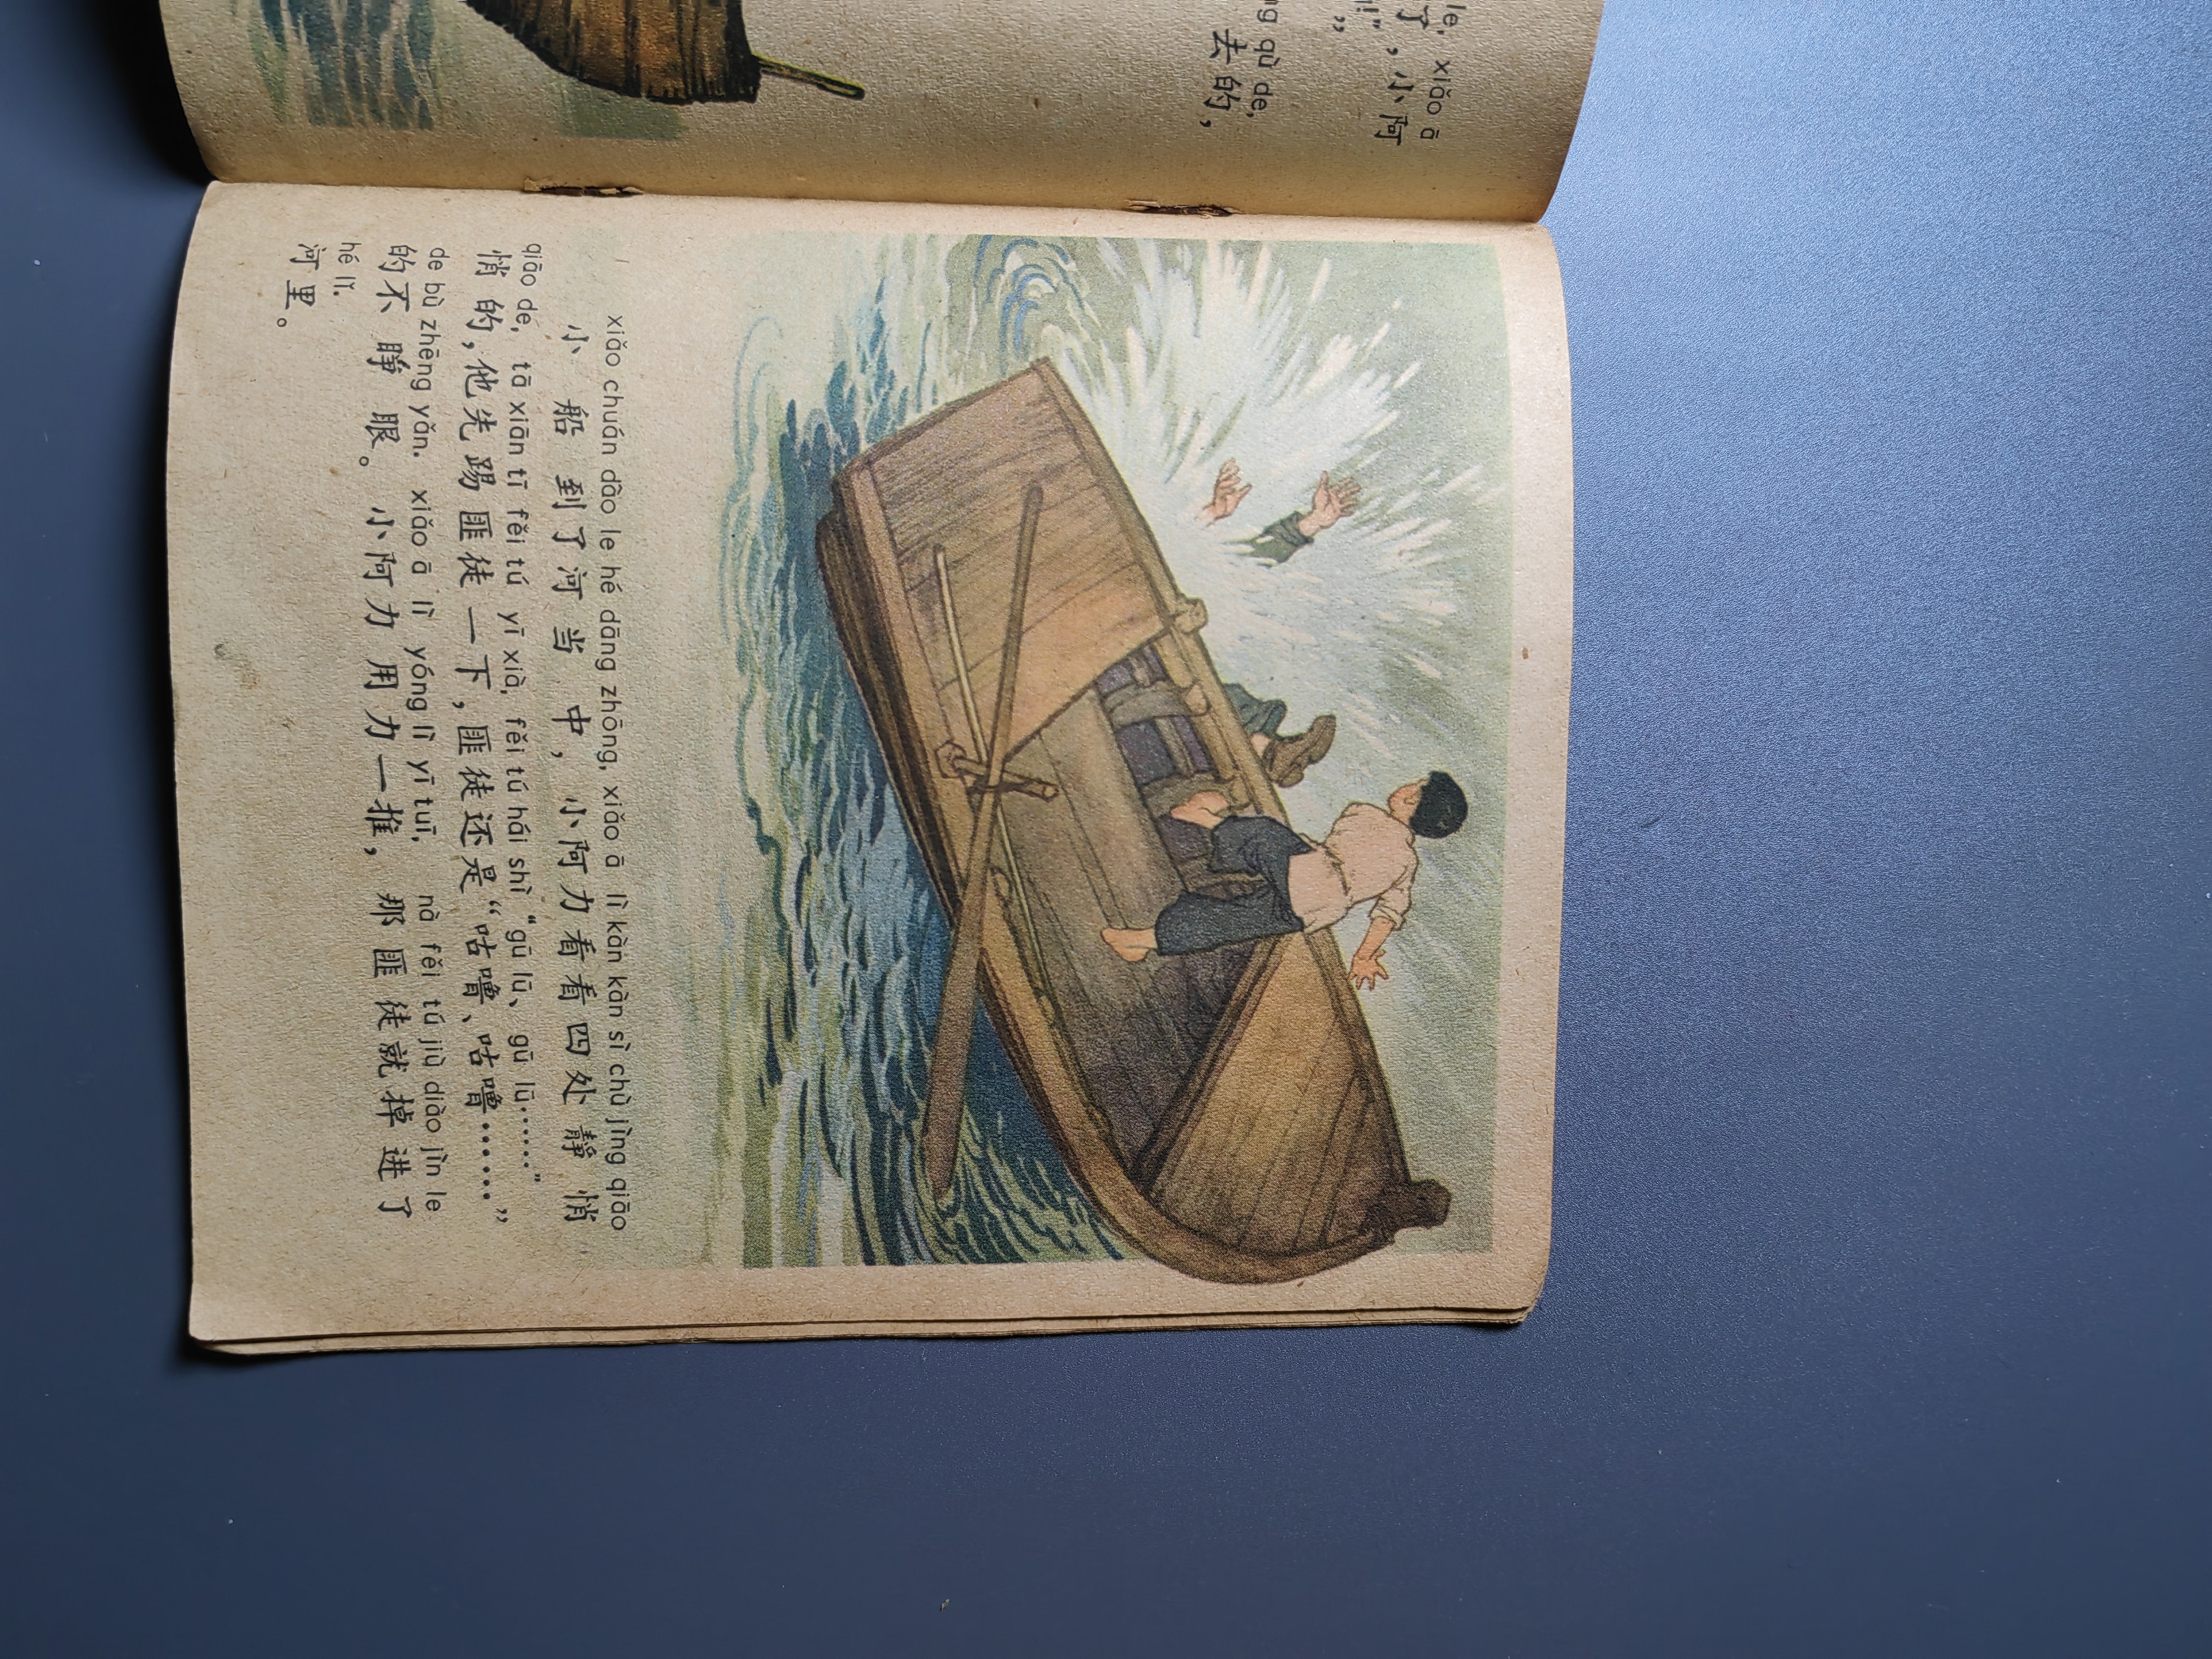 le, xiǎo ā
了，小阿
!”
ng qù de,
去的，
xiǎo chuán dào le hé dāng zhōng, xiǎo ā lì kàn kàn sì chù jìng qiāo
小船到了河当中，小阿力看看四处静悄
qiāo de, tā xiān tī fěi tú yī xià, fěi tú hái shì “gū lū、gū lū……”
悄的，他先踢匪徒一下，匪徒还是“咕噜、咕噜……”
de bù zhēng yǎn. xiǎo ā lì yóng lì yī tuī, nà fěi tú jiù diào jìn le
的不睁眼。小阿力用力一推，那匪徒就掉进了
hé lǐ.
河里。